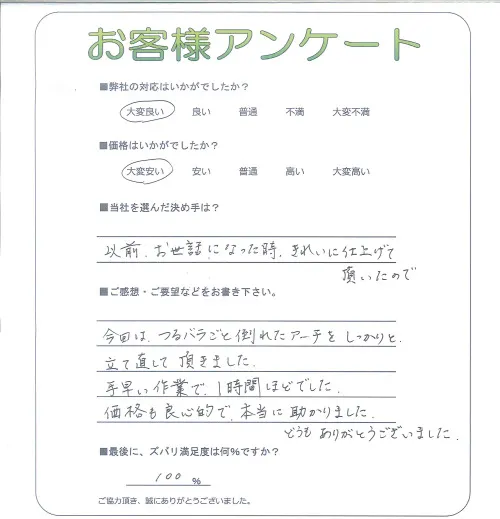 お客様アンケート
■弊社の対応はいかがでしたか?
大変良い 良い 普通 不満 大変不満
■価格はいかがでしたか?
大変安い 安い 普通 高い 大変高い
■当社を選んだ決め手は?
以前、お世話になった時、きれいに仕上げて
頂いたので
■ご感想・ご要望などをお書き下さい。
今回は、つるバラごと倒れたアーチをしっかりと、
立て直して頂きました。
手早い作業で、1時間ほどでした。
価格も良心的で、本当に助かりました。
どうもありがとうございました。
■最後に、ズバリ満足度は何%ですか?
100 %
ご協力頂き、誠にありがとうございました。